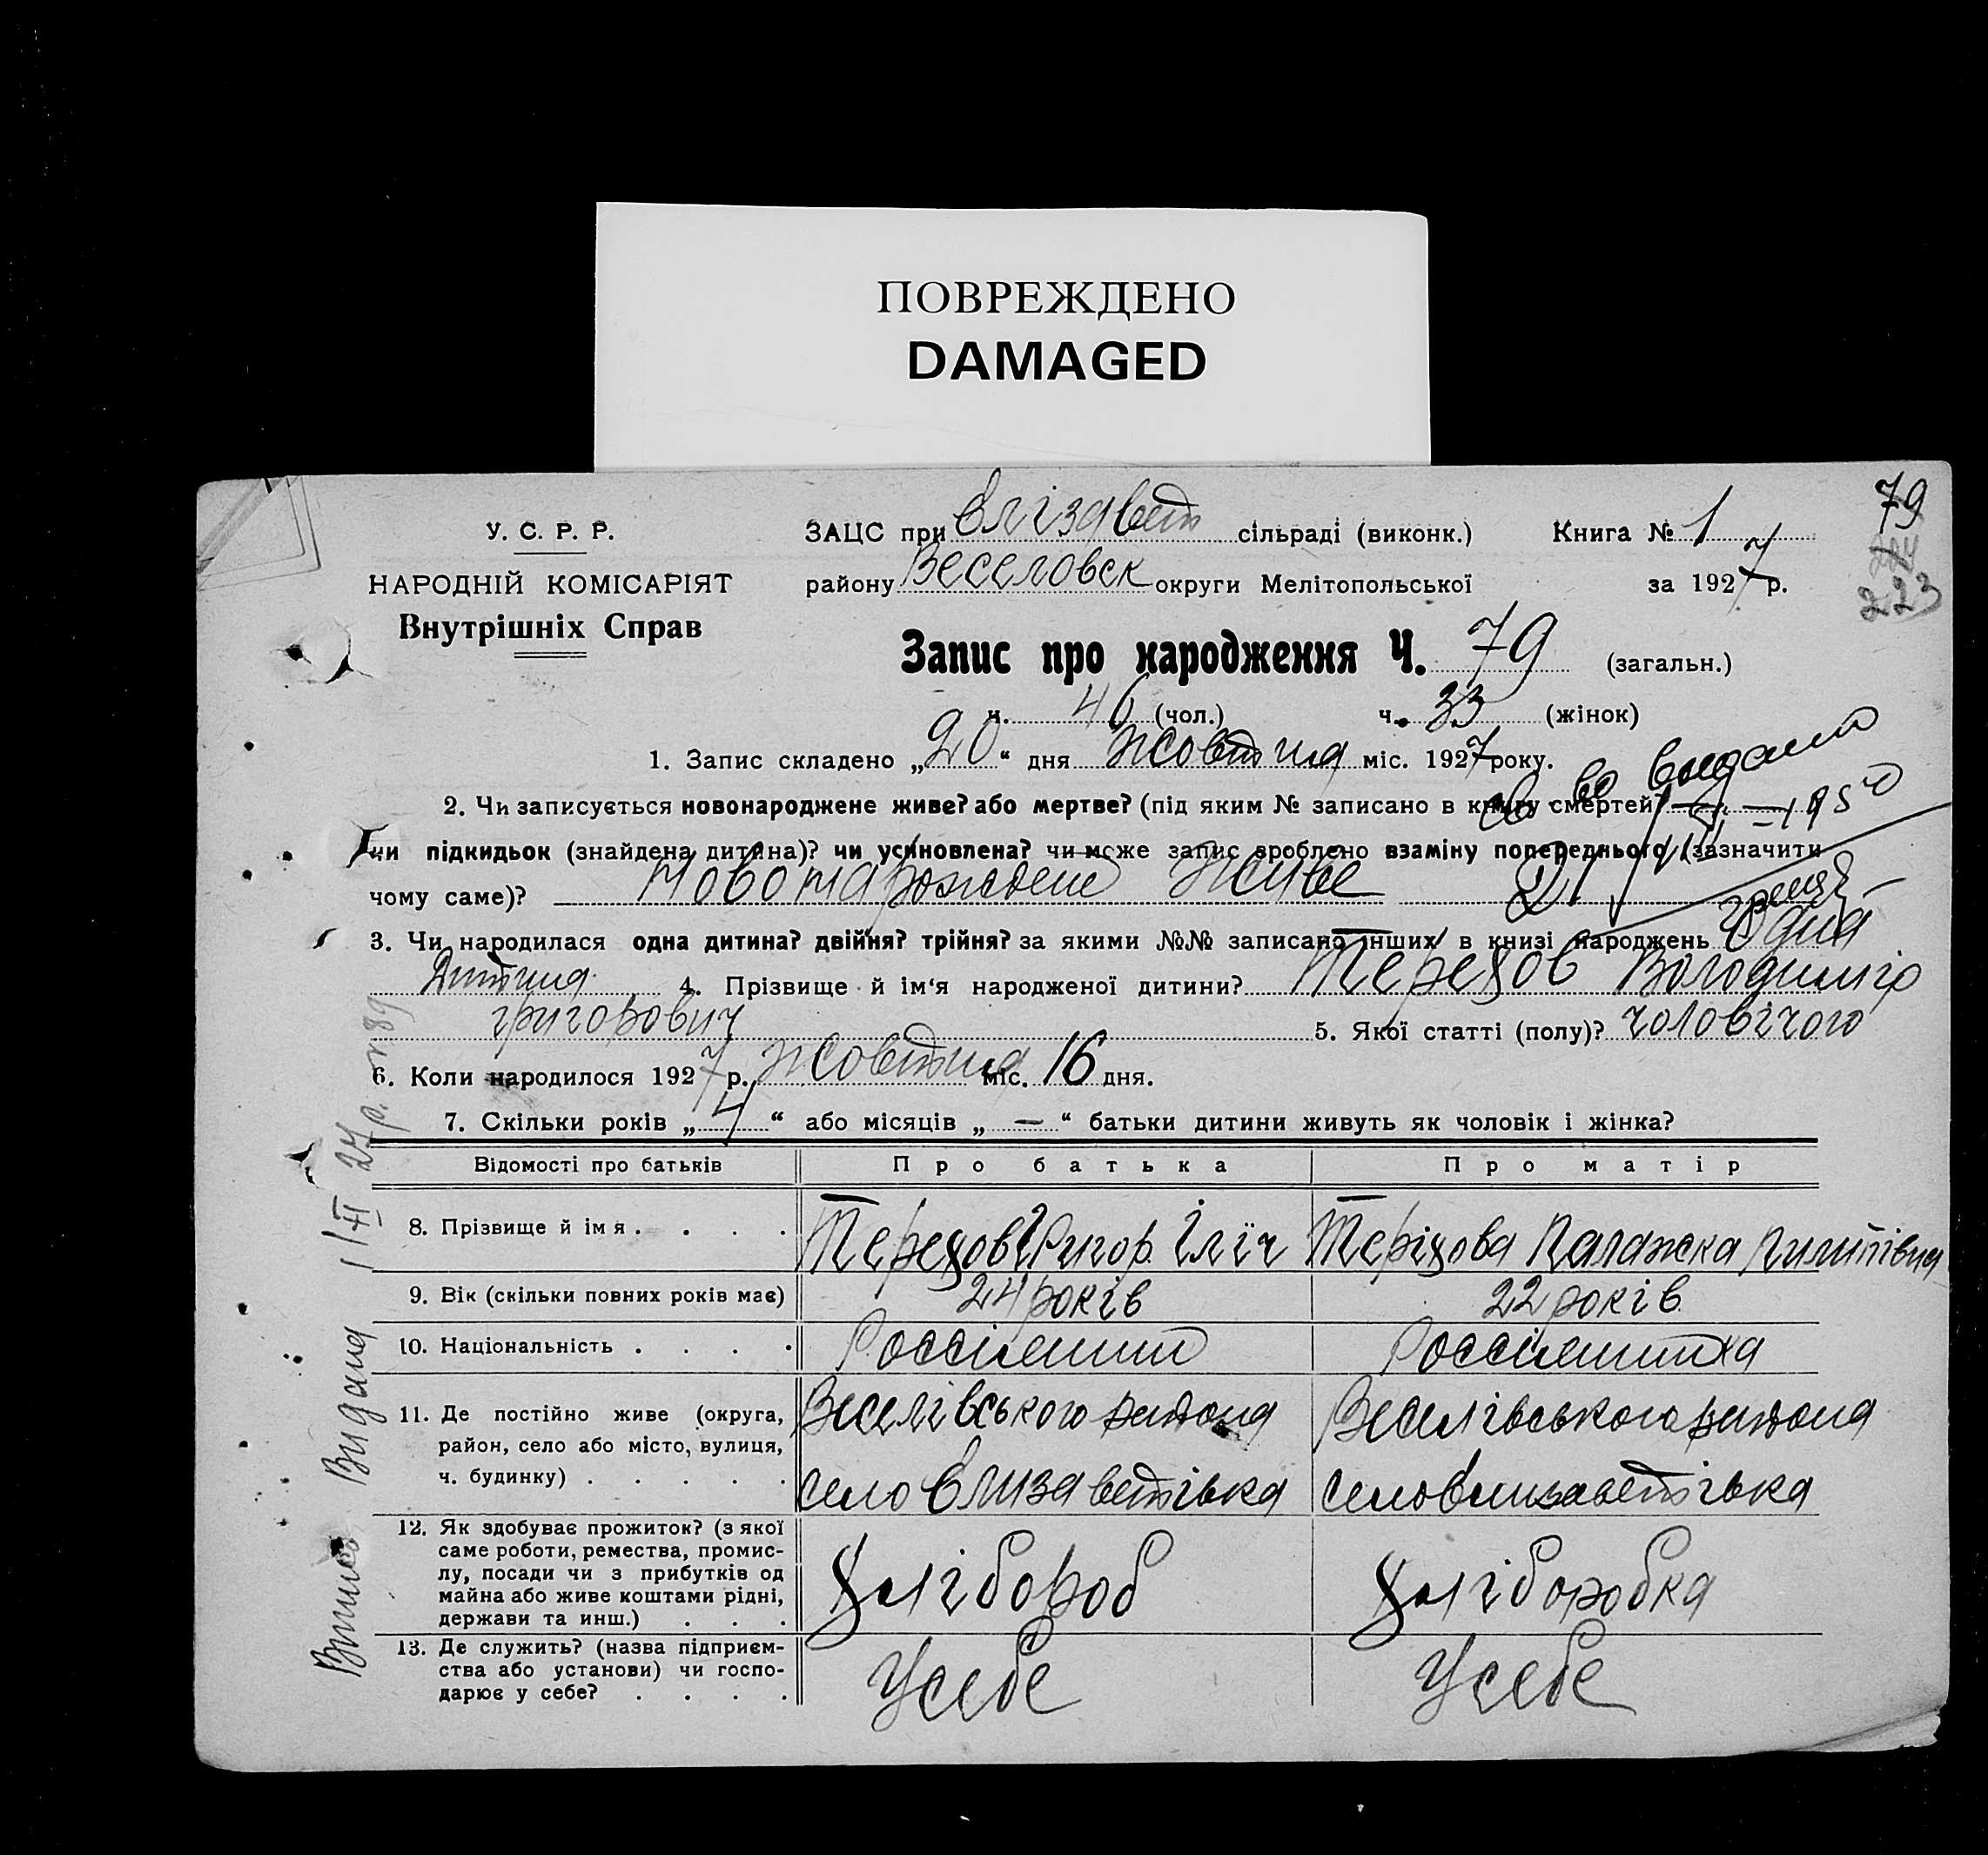 ПОВРЕЖДЕНО
DAMAGED
У. С. Р. Р.
НАРОДНІЙ КОМІСАРІЯТ
Внутрішніх Справ
ЗАЦС при Єлізавет сільраді (виконк.) Книга № 1
79
району Веселовск округи Мелітопольської за 1927 р.
223
Запис про народження Ч. 79 (загальн.)
ч. 46 (чол.) ч. 33 (жінок)
1. Запис складено „20“ дня жовтня міс. 1927 року.
видано
2. Чи записується новонароджене живе? або мертве? (під яким № записано в книгу смертей?
1950
чи підкидьок (знайдена дитина)? чи усиновлена? чи може запис зроблено взаміну попереднього (зазначити
чому саме)? новонарождене живе
3. Чи народилася одна дитина? двійня? трійня? за якими №№ записано інших в книзі народжень Одна
дитина 4. Прізвище й ім‘я народженої дитини? Терещов Володимір
григорович 5. Якої статті (полу)? чоловічого
6. Коли народилося 1927 р. жовтня міс. 16 дня.
7. Скільки років „4“ або місяців „—“ батьки дитини живуть як чоловік і жінка?
Відомості про батьків Про батька Про матір
8. Прізвище й імя . . . . Терещов Григор. Іліч Теріщова Палажка Пилипівна
9. Вік (скільки повних років має) 24 років 22 років
10. Національність . . . . Россіянин Россіянинка
11. Де постійно живе (округа, район, село або місто, вулиця, ч. будинку) . . . . . Веселівського района Веселівського района
село Єлизаветівка село Єлизаветівка
12. Як здобуває прожиток? (з якої саме роботи, ремества, промислу, посади чи з прибутків од майна або живе коштами рідні, держави та инш.) . . . Хлібороб Хліборобка
13. Де служить? (назва підприємства або установи) чи господарює у себе? . . . . У себе У себе
Видана 1/XI 27 р.